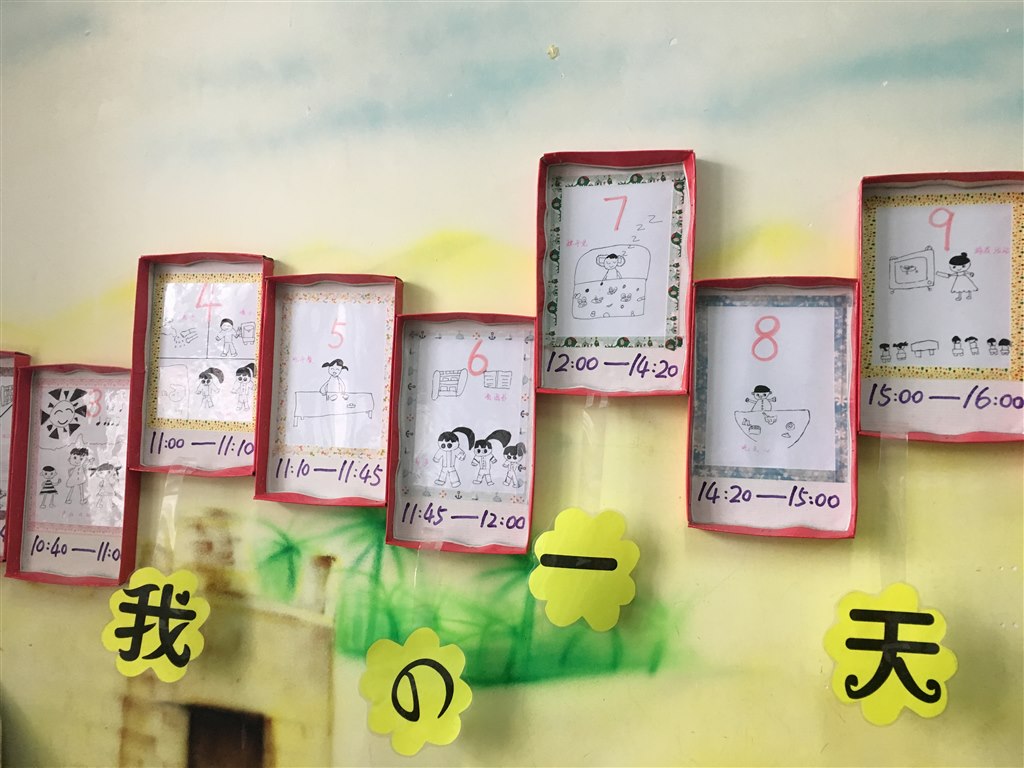 3
10:40—11:0
4
11:00—11:10
5
11:10—11:45
6
看图书
11:45—12:00
7
z z z z
12:00—14:20
8
14:20—15:00
9
游戏活动
15:00—16:00
我の一天